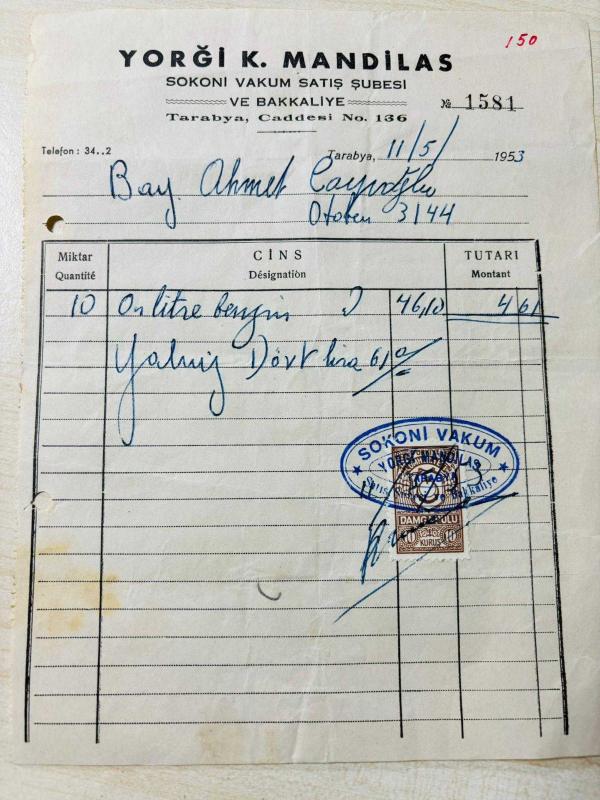 150
YORGİ K. MANDİLAS
SOKONİ VAKUM SATIŞ ŞUBESİ
VE BAKKALİYE
№ 1581
Tarabya, Caddesi No. 136
Telefon : 34..2
Tarabya, 11/5/ 1953
Bay Ahmet
3144
Miktar CİNS TUTARI
Quantité Désignation Montant
10 On litre benzin 46,10 4 61
Yalnız Dört lira 61
SOKONİ VAKUM
YORGİ MANDİLAS
TARABYA
Satış Bakkaliye
DAMGA PULU
10 KURUŞ 10